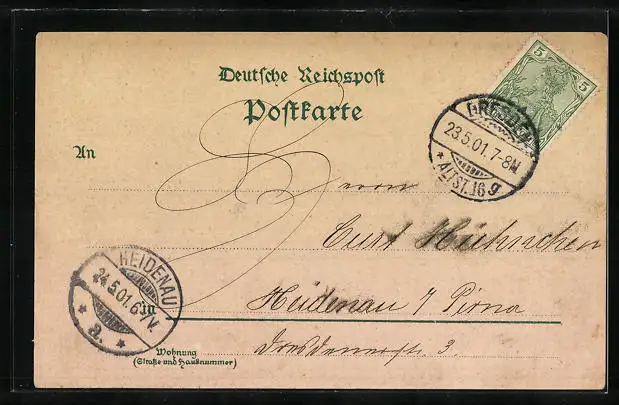 Deutsche Reichspost
Postkarte
5 5
DRESDEN
23.5.01.7-8N.
* ALTST.16 g
An
Herrn
Curt Hühnchen
HEIDENAU
24.5.01.6-7V.
* a. *
in
Heidenau / Pirna
Dresdennerstr. 3.
Wohnung
(Straße und Hausnummer)